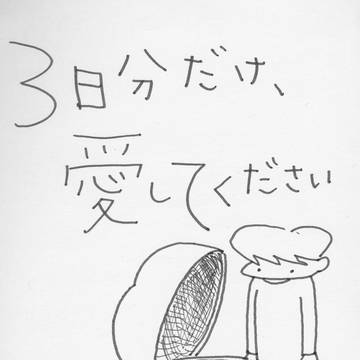 3日分だけ、
愛してください